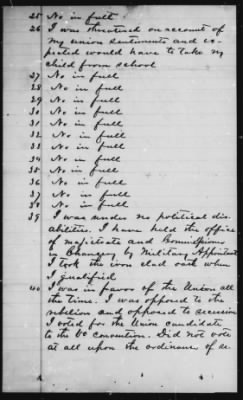 25 No in full
26 I was threatened on account of
my union sentiments and ex-
pected would have to take my
child from school
27 No in full
28 No in full
29 No in full
30 No in full
31 No in full
32 No in full
33 No in full
34 No in full
35 No in full
36 No in full
37 No in full
38 No in full
39 I was under no political dis-
abilities. I have held the office
of majistrate and
in Chancery by Military Appointment
I took the iron clad oath when
I qualified
40 I was in favor of the Union all
the time. I was opposed to the
rebelion and opposed to secession
I voted for the Union candidate
to the Va convention. Did not vote
at all upon the ordinance of se